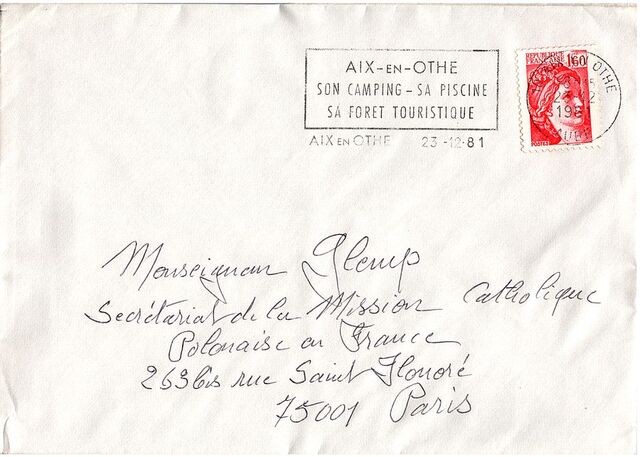 AIX-EN-OTHE
SON CAMPING - SA PISCINE
SA FORET TOURISTIQUE
AIX EN OTHE 23-12-81
REPUBLIQUE
FRANÇAISE
1,60
OTHE
1981
AUBE
POSTES
Monseigneur Glemp
Secrétariat de la Mission Catholique
Polonaise en France
263bis rue Saint Honoré
75001 Paris